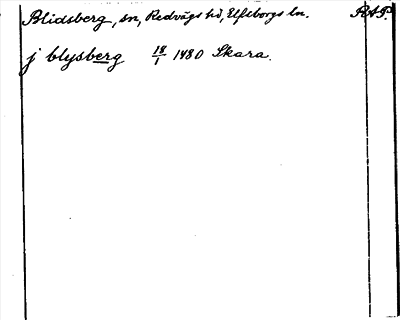 Blidsberg, sn, Redvägs hd, Elfsborgs ln. RAP.
j blysberg 18/1 1480 Skara.